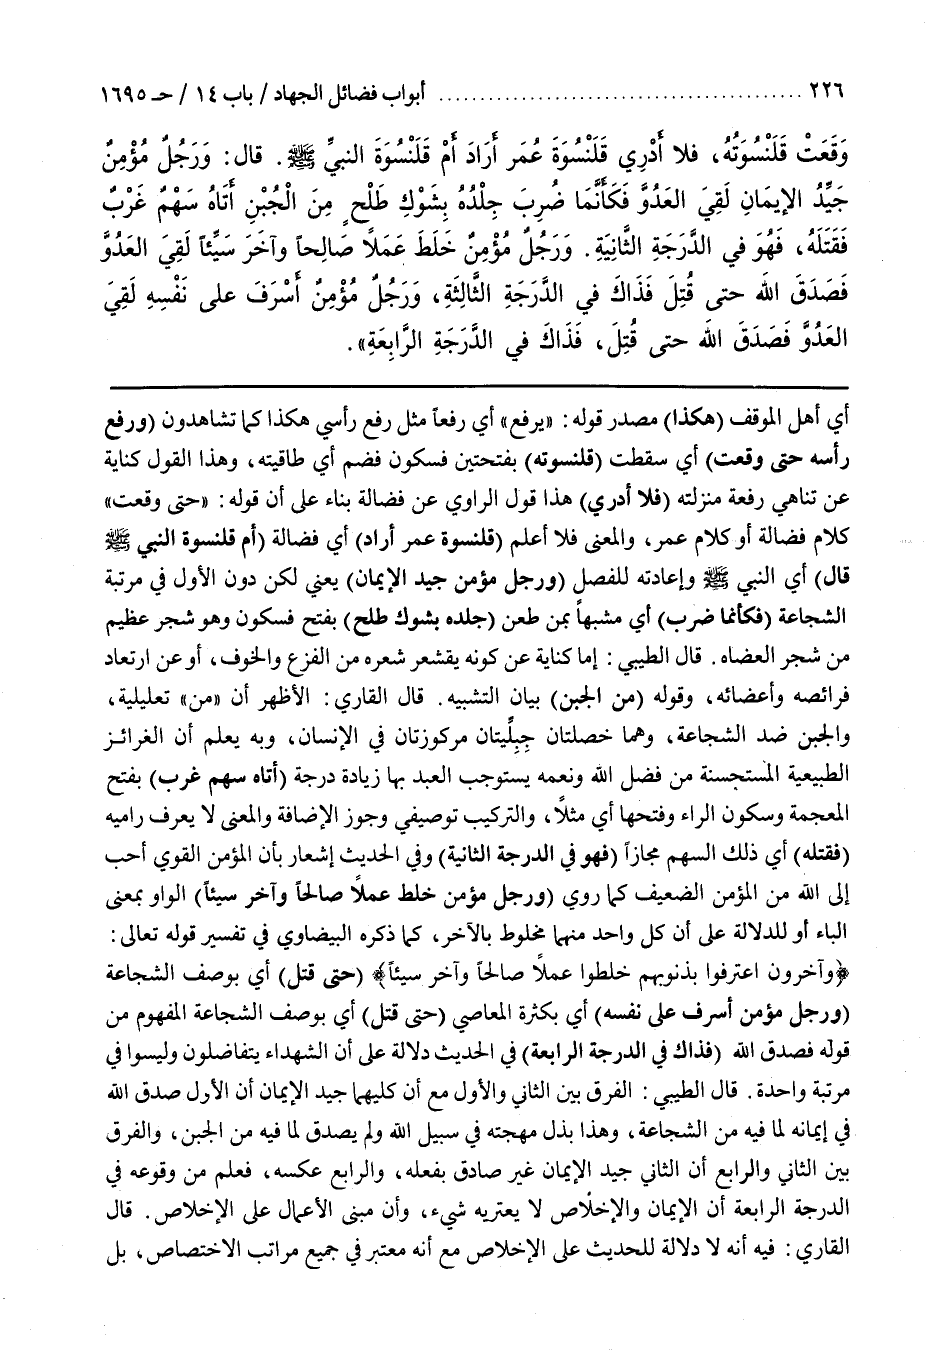 ٢٢٦ ........................................... أبواب فضائل الجهاد/ باب ١٤/ حـ ١٦٩٥
وَقَعَتْ قَلَنْسُوَتُهُ، فلا أَدْرِي قَلَنْسُوَةَ عُمَر أَرَادَ أَمْ قَلَنْسُوَةَ النبيِّ ﷺ. قال: وَرَجُلٌ مُؤْمِنٌ
جَيِّدُ الإيمَانِ لَقِيَ العَدُوَّ فَكَأَنَّمَا ضُرِبَ جِلْدُهُ بِشَوْكِ طَلْحٍ مِنَ الْجُبْنِ أَتَاهُ سَهْمٌ غَرْبٌ
فَقَتَلَهُ، فَهُوَ في الدَّرَجَةِ الثَّانِيَةِ. وَرَجُلٌ مُؤْمِنٌ خَلَطَ عَمَلاً صَالِحاً وآخَرَ سَيِّئاً لَقِيَ العَدُوَّ
فَصَدَقَ الله حتى قُتِلَ فَذَاكَ في الدَّرَجَةِ الثَّالِثَةِ، وَرَجُلٌ مُؤْمِنٌ أَسْرَفَ على نَفْسِهِ لَقِيَ
العَدُوَّ فَصَدَقَ الله حتى قُتِلَ، فَذَاكَ في الدَّرَجَةِ الرَّابِعَةِ».
أي أهل الموقف (هكذا) مصدر قوله: «يرفع» أي رفعاً مثل رفع رأسي هكذا كما تشاهدون (ورفع
رأسه حتى وقعت) أي سقطت (قلنسوته) بفتحتين فسكون فضم أي طاقيته، وهذا القول كناية
عن تناهي رفعة منزلته (فلا أدري) هذا قول الراوي عن فضالة بناء على أن قوله: «حتى وقعت»
كلام فضالة أو كلام عمر، والمعنى فلا أعلم (قلنسوة عمر أراد) أي فضالة (أم قلنسوة النبي ﷺ
قال) أي النبي ﷺ وإعادته للفصل (ورجل مؤمن جيد الإيمان) يعني لكن دون الأول في مرتبة
الشجاعة (فكأنما ضرب) أي مشبهاً بمن طعن (جلده بشوك طلح) بفتح فسكون وهو شجر عظيم
من شجر العضاه. قال الطيبي: إما كناية عن كونه يقشعر شعره من الفزع والخوف، أو عن ارتعاد
فرائصه وأعضائه، وقوله (من الجبن) بيان التشبيه. قال القاري: الأظهر أن «من» تعليلية،
والجبن ضد الشجاعة، وهما خصلتان جِبِلِّيتان مركوزتان في الإنسان، وبه يعلم أن الغرائز
الطبيعية المستحسنة من فضل الله ونعمه يستوجب العبد بها زيادة درجة (أتاه سهم غرب) بفتح
المعجمة وسكون الراء وفتحها أي مثلاً، والتركيب توصيفي وجوز الإضافة والمعنى لا يعرف راميه
(فقتله) أي ذلك السهم مجازاً (فهو في الدرجة الثانية) وفي الحديث إشعار بأن المؤمن القوي أحب
إلى الله من المؤمن الضعيف كما روي (ورجل مؤمن خلط عملاً صالحاً وآخر سيئاً) الواو بمعنى
الباء أو للدلالة على أن كل واحد منهما مخلوط بالآخر، كما ذكره البيضاوي في تفسير قوله تعالى:
﴿وآخرون اعترفوا بذنوبهم خلطوا عملاً صالحاً وآخر سيئاً﴾ (حتى قتل) أي بوصف الشجاعة
(ورجل مؤمن أسرف على نفسه) أي بكثرة المعاصي (حتى قتل) أي بوصف الشجاعة المفهوم من
قوله فصدق الله (فذاك في الدرجة الرابعة) في الحديث دلالة على أن الشهداء يتفاضلون وليسوا في
مرتبة واحدة. قال الطيبي: الفرق بين الثاني والأول مع أن كليهما جيد الإيمان أن الأول صدق الله
في إيمانه لما فيه من الشجاعة، وهذا بذل مهجته في سبيل الله ولم يصدق لما فيه من الجبن، والفرق
بين الثاني والرابع أن الثاني جيد الإيمان غير صادق بفعله، والرابع عكسه، فعلم من وقوعه في
الدرجة الرابعة أن الإيمان والإخلاص لا يعتريه شيء، وأن مبنى الأعمال على الإخلاص. قال
القاري: فيه أنه لا دلالة للحديث على الإخلاص مع أنه معتبر في جميع مراتب الاختصاص، بل